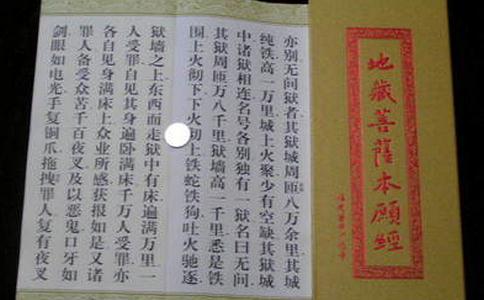 地藏菩薩本願經
亦别无间狱者其狱城周匝八万余里其城
纯铁高一万里城上火聚少有空缺其狱城
中诸狱相连名号各别独有一狱名曰无间
其狱周匝万八千里狱墙高一千里悉是铁
围上火彻下下火彻上铁蛇铁狗吐火驰逐
狱墙之上东西而走狱中有床遍满万里一
人受罪自见其身遍卧满床千万人受罪亦
各自见身满床上众业所感获报如是又诸
罪人备受众苦千百夜叉及以恶鬼口牙如
剑眼如电光手复铜爪拖拽罪人复有夜叉